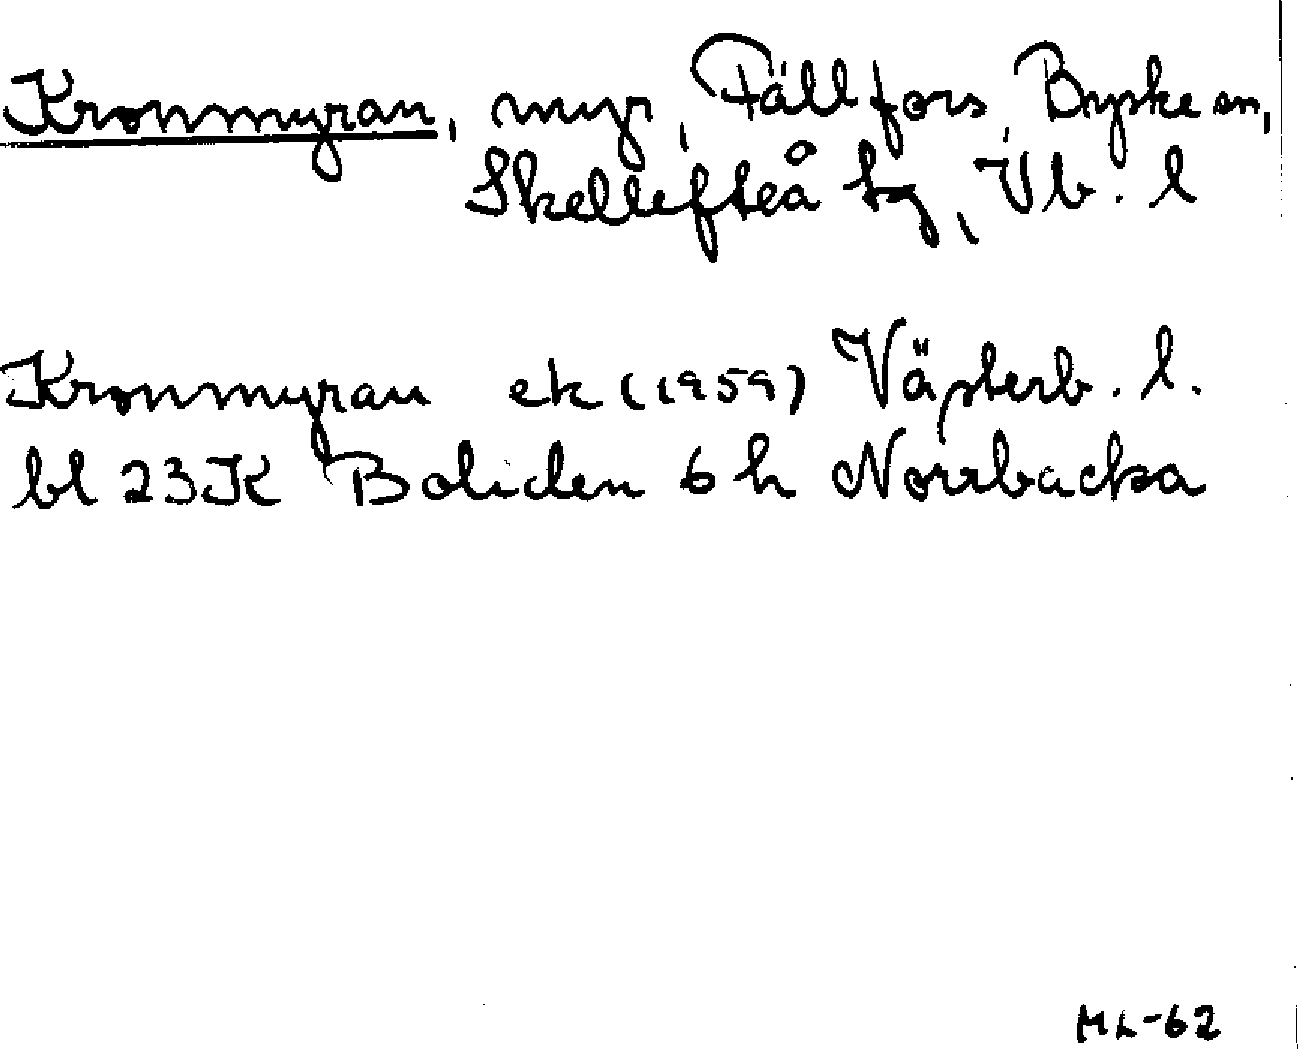 Kronmyran, myr, Fällfors, Byske sn,
Skellefteå tg, Vb. l
Kronmyran ek (1959) Västerb. l.
bl 23K Boliden 6 h Norrbacka
ML-62